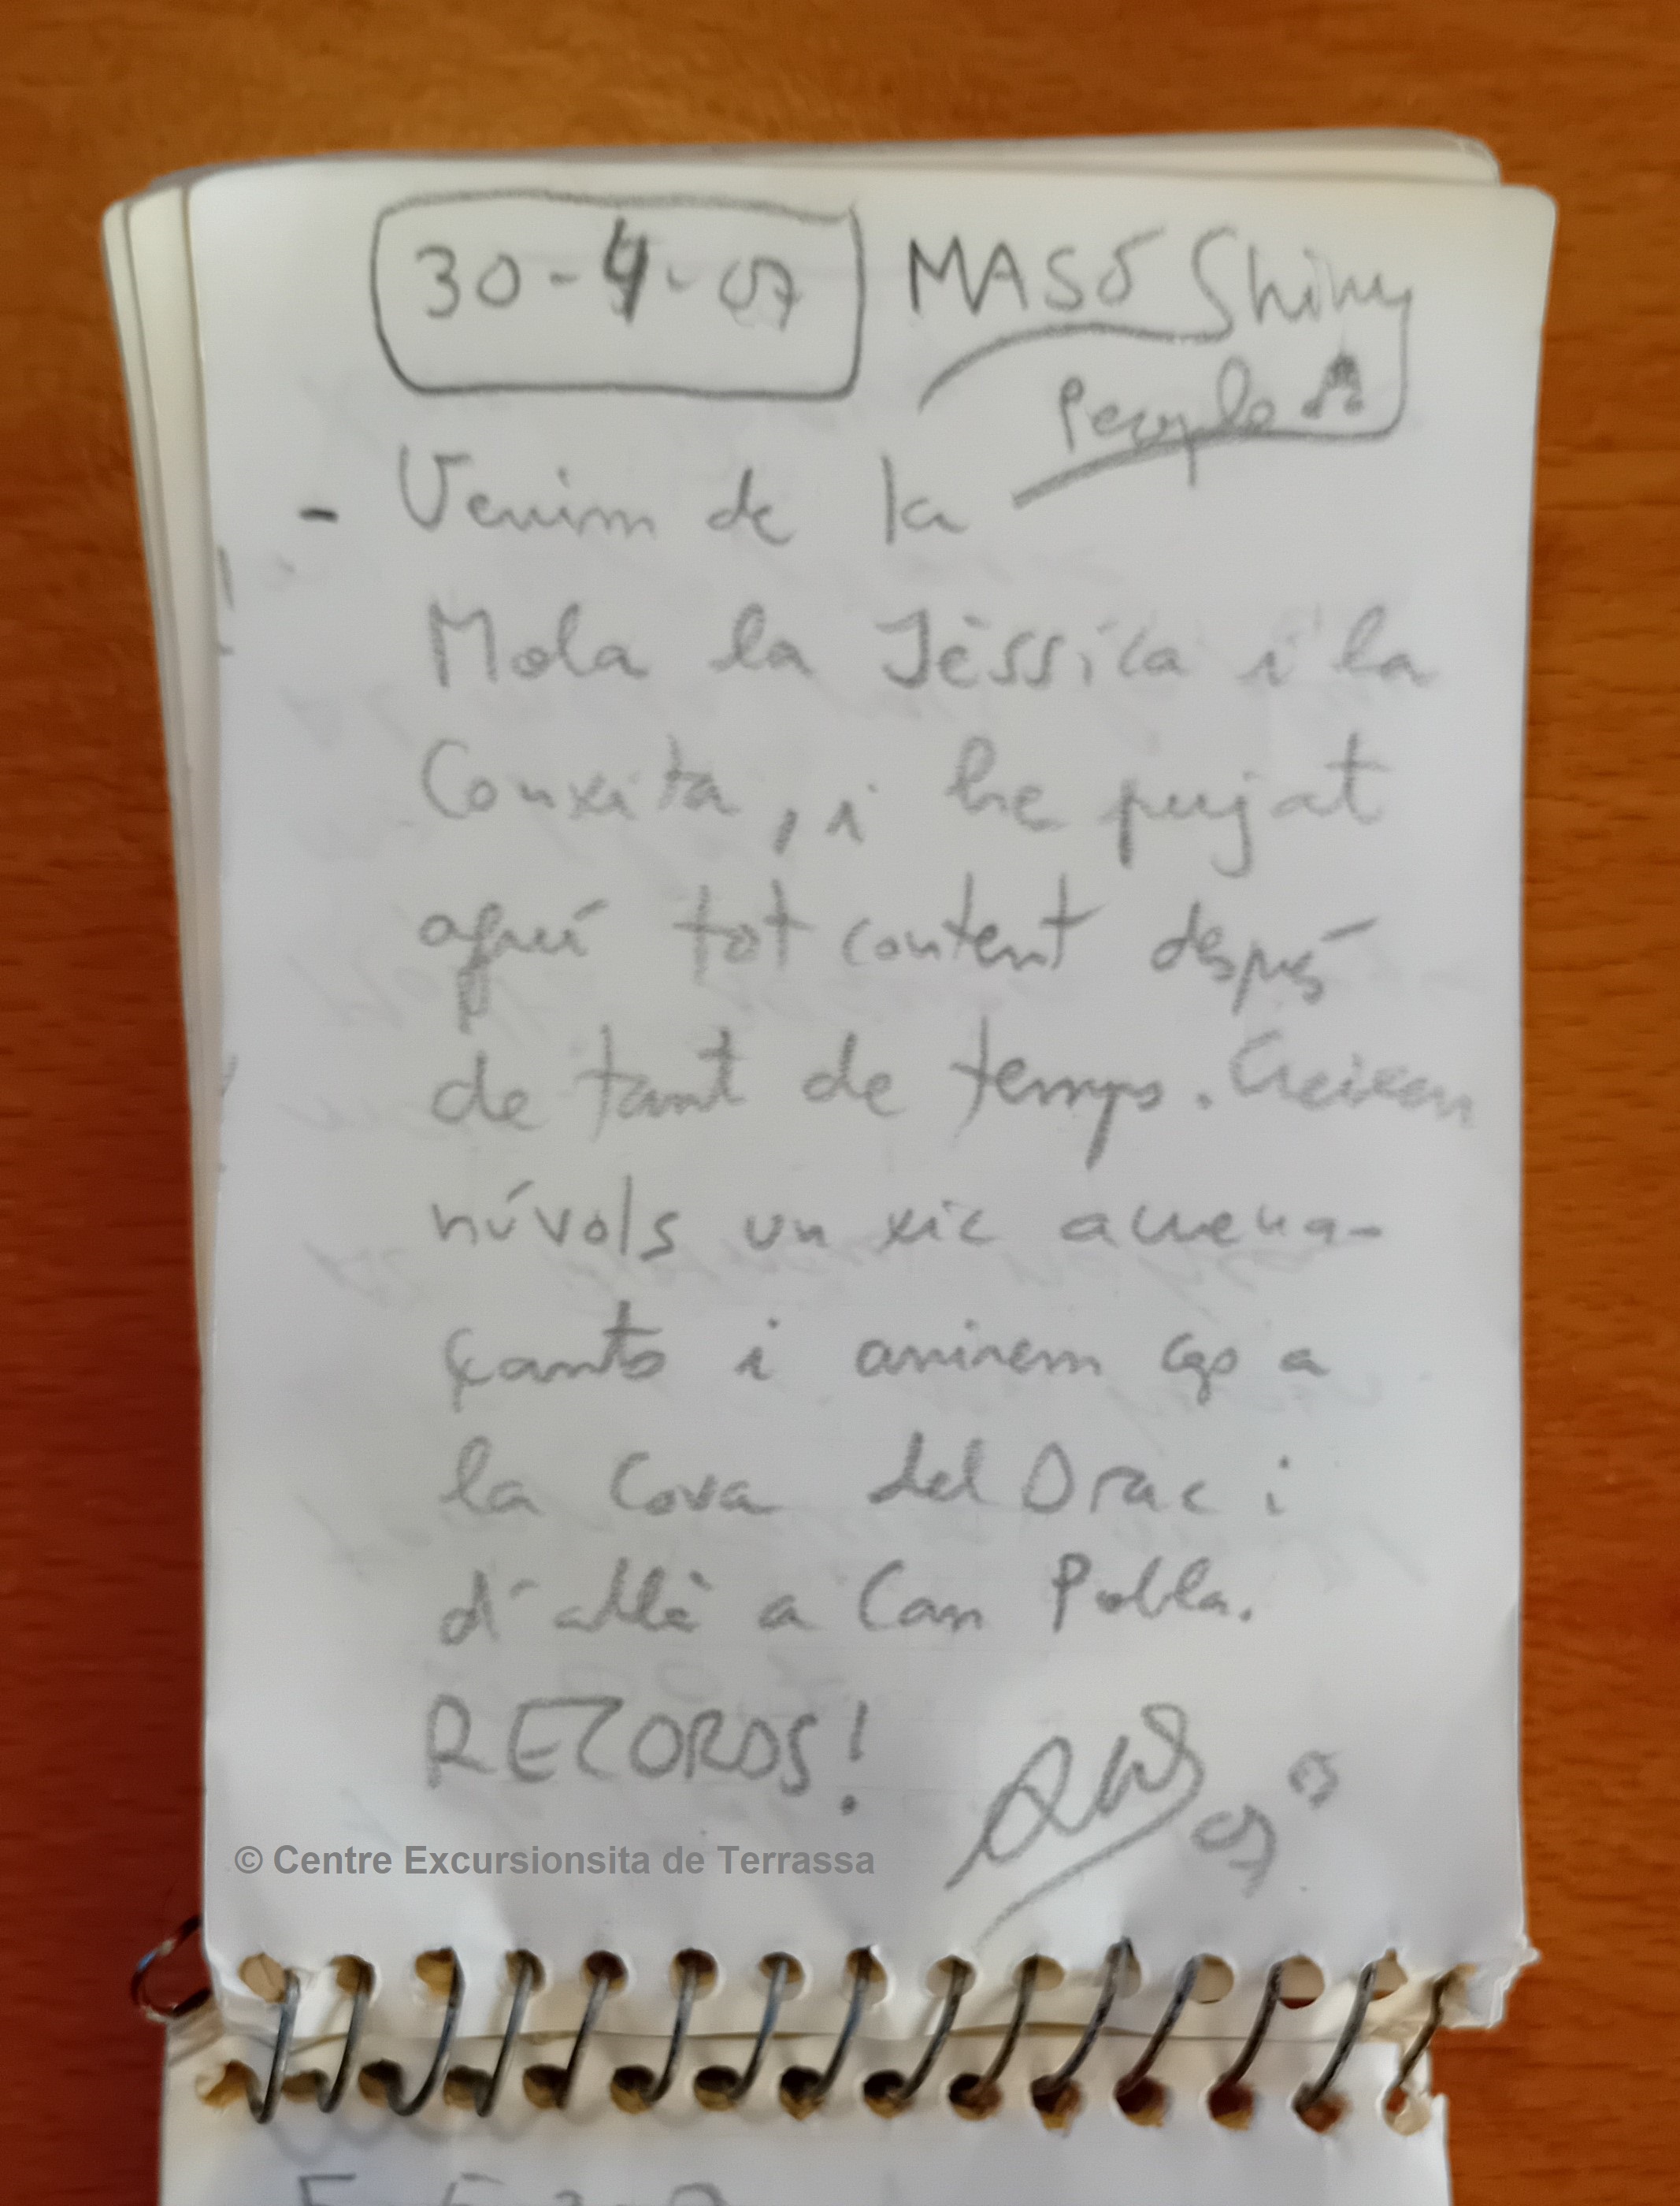 30-4-07 MASÓ Shiny
People
- Venim de la
Mola la Jèssica i la
Conxita, i he pujat
aquí tot content després
de tant de temps. Creixen
núvols un xic amena-
çants i anirem cap a
la Cova del Drac i
d'allà a Can Pobla.
RECORDS!
07
© Centre Excursionsita de Terrassa